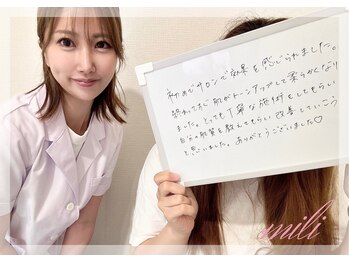 初めてサロンで効果を感じられました。
終わってすぐ肌がトーンアップして柔らかくなり
ました。とっても丁寧な施術をしてもらい
自分の肌質を教えてもらい改善していこう
と思いました。ありがとうございました♡
mili